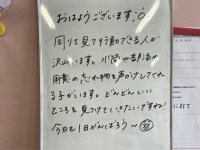 おはようございます!
周りを見て行動できる人が
沢山います。水筒や部活の
用具の忘れ物を声かけしてくれ
る子がいます。どんどんいい
ところを見つけていきたいですね!
今日も1日がんばろう〜